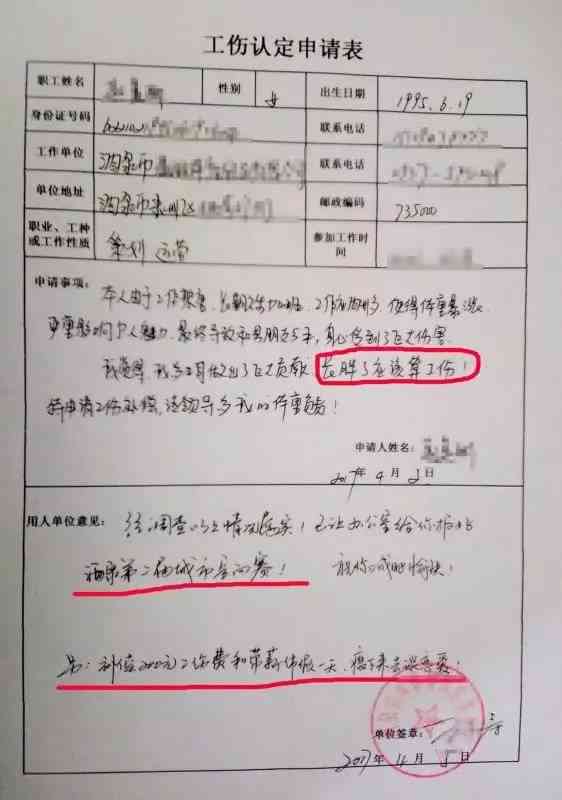 工伤认定申请表
职工姓名 性别 女 出生日期 1995.6.19
身份证号码 联系电话
工作单位 酒泉市 联系电话
单位地址 酒泉市肃州区 邮政编码 735000
职业、工种或工作性质 策划 运营 参加工作时间
申请事项:
本人由于工作繁忙,长期 加班,工作 使得体重暴涨,
严重影响个人魅力,最终导致和男朋友分手,身心受到了巨大伤害。
我觉得,我为公司作出了巨大贡献,长胖了应该算工伤!
特申请工伤补偿,请领导为我的体重负责!
申请人姓名:
2017年4月2日
用人单位意见:
经调查以上情况属实!已让办公室给你报名
酒泉第二届城市 赛! 祝你减肥愉快!
另:补偿200元工伤费和带薪休假一天,瘦下来去谈恋爱!
单位签章:
2017年4月5日